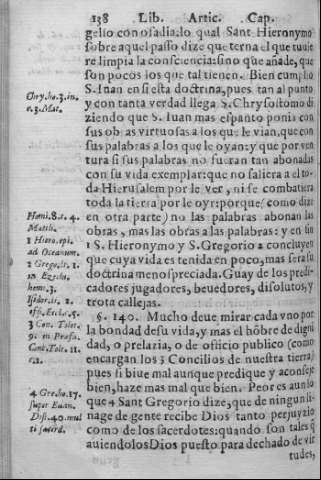 138 Lib. Artic. Cap.
gelio con osadia: lo qual Sant Hieronymo
sobre aquel passo dize que terna el que tuuie
re limpia la consciencia: sino que añade, que
son pocos los que tal tienen. Bien cumplio
S. Iuan en si esta doctrina, pues tan al punto
y con tanta verdad llega S. Chrysostomo di
ziendo que S. Iuan mas espanto ponia con
sus obras virtuosas a los que le vian, que con
sus palabras a los que le oyan: y que por ven
tura si sus palabras no fueran tan abonadas
con su vida exemplar: que no saliera a el to-
da Hierusalem por le ver, ni se combatiera
toda la tierra por le oyr: porque (como dize
en otra parte) no las palabras abonan las
obras, mas las obras a las palabras: y en sin
1 S. Hieronymo y S. Gregorio 2 concluyen
que cuya vida es tenida en poco, mas sera su
doctrina menospreciada. Guay de los predi-
cadores jugadores, beuedores, disolutos, y
trota callejas.
§. 140. Mucho deue mirar cada vno por
la bondad de su vida, y mas el hõbre de digni
dad, o prelazia, o de officio publico (como
encargan los 3 Concilios de nuestra tierra)
pues si biue mal aunque predique y aconseje
bien, haze mas mal que bien. Peor es aun lo
que 4 Sant Gregorio dize, que de ningun li-
nage de gente recibe Dios tanto perjuyzio
como de los sacerdotes: quando son tales q̃
auiendolos Dios puesto para dechado de vir
tudes,
Chry. ho. 3. in.
c. 3. Mat.
Homi. 8. c. 4.
Matth.
1 Hiero. epi.
ad Oceanum.
2 Grego.
in Ezech.
hom. 3.
Isidor.
3 Con. Tole.
4 Gre. ho. 17.
super Euan.
Dist. 40. mul
ti sacerd.